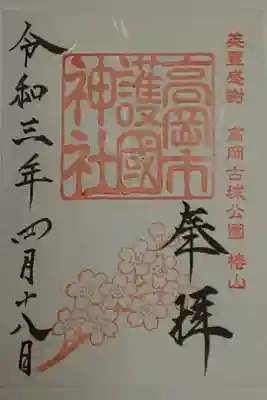 英霊感謝 高岡古城公園 椿山
高岡市
護國
神社
奉拝
令和三年四月十八日